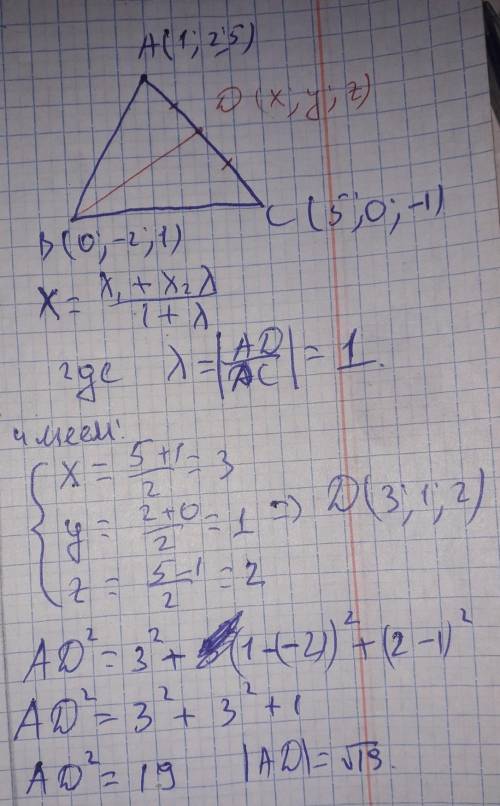 A(1; 2;5)
D(x; y; z)
C(5; 0; -1)
B(0; -2; 1)
x = (x₁ + x₂λ)/(1 + λ)
где λ = |AD/DC| = 1.
имеем:
{ x = (5+1)/2 = 3
y = (2+0)/2 = 1 => D(3; 1; 2)
z = (5-1)/2 = 2
AD² = 3² + (1-(-2))² + (2-1)²
AD² = 3² + 3² + 1
AD² = 19 |AD| = √19.